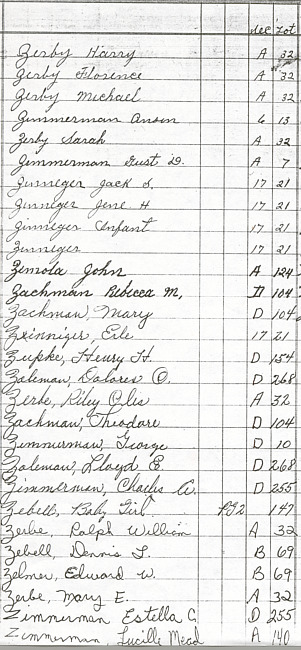 Sec Lot
Zerby Harry A 32
Zerby Florence A 32
Zerby Michael A 32
Zimmerman Anson 6 13
Zerby Sarah A 32
Zimmerman Gust D. A 7
Zinneger Jack S. 17 21
Zinneger Jene H 17 21
Zinneger Infant 17 21
Zinneger 17 21
Zimola John A 124
Zachman Rebecca M, D 104
Zachman, Mary D 104
Zeinniger, Erle 17 21
Zupke, Henry H. D 154
Zaleman, Dolores O. D 268
Zerbe, Riley A 32
Zachman, Theodore D 104
Zimmerman, George D 10
Zoleman, Lloyd E. D 268
Zimmerman, Charles A. D 255
Zebell, Baby Girl. 147
Zerbe, Ralph William A 32
Zebell, Dennis J. B 69
Zelmer, Edward W. B 69
Zerbe, Mary E. A 32
Zimmerman Estella C. D 255
Zimmerman, Lucille Mead A 140